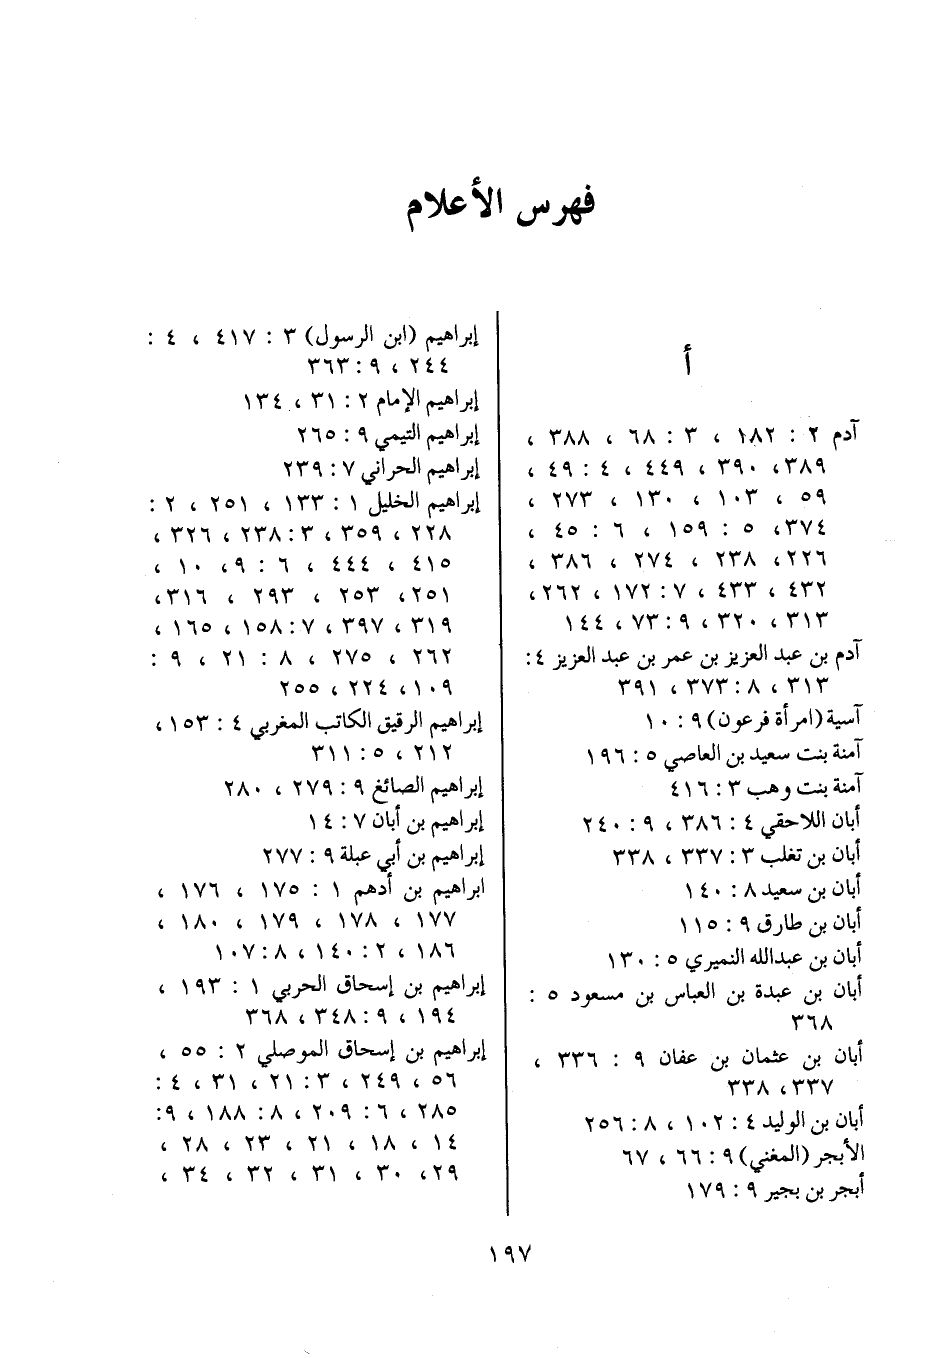 فهرس الأعلام
أ
آدم ٢ : ١٨٢ ، ٣ : ٦٨ ، ٣٨٨ ،
٣٨٩، ٣٩٠ ، ٤٤٩ ، ٤ : ٤٩ ،
٥٩ ، ١٠٣ ، ١٣٠ ، ٢٧٣ ،
٣٧٤، ٥ : ١٥٩ ، ٦ : ٤٥ ،
٢٢٦، ٢٣٨ ، ٢٧٤ ، ٣٨٦ ،
٤٣٢ ، ٤٣٣ ، ٧: ١٧٢ ، ٢٦٢،
٣١٣ ، ٣٢٠ ، ٩ : ٧٣ ، ١٤٤
آدم بن عبد العزيز بن عمر بن عبد العزيز ٤ :
٣١٣ ، ٨: ٣٧٣ ، ٣٩١
آسية (امرأة فرعون) ٩ : ١٠
آمنة بنت سعيد بن العاصي ٥ : ١٩٦
آمنة بنت وهب ٣ : ٤١٦
أبان اللاحقي ٤ : ٣٨٦ ، ٩ : ٢٤٠
أبان بن تغلب ٣ : ٣٣٧ ، ٣٣٨
أبان بن سعيد ٨ : ١٤٠
أبان بن طارق ٩ : ١١٥
أبان بن عبدالله النميري ٥ : ١٣٠
أبان بن عبدة بن العباس بن مسعود ٥ :
٣٦٨
أبان بن عثمان بن عفان ٩ : ٣٣٦ ،
٣٣٧، ٣٣٨
أبان بن الوليد ٤ : ١٠٢ ، ٨ : ٢٥٦
الأبجر (المغني) ٩ : ٦٦ ، ٦٧
أبجر بن بجير ٩ : ١٧٩
إبراهيم (ابن الرسول) ٣ : ٤١٧ ، ٤ :
٢٤٤ ، ٩ : ٣٦٣
إبراهيم الإمام ٢ : ٣١ ، ١٣٤
إبراهيم التيمي ٩ : ٢٦٥
إبراهيم الحراني ٧ : ٢٣٩
إبراهيم الخليل ١ : ١٣٣ ، ٢٥١ ، ٢ :
٢٢٨ ، ٣٥٩ ، ٣: ٢٣٨ ، ٣٢٦ ،
٤١٥ ، ٤٤٤ ، ٦ : ٩، ١٠ ،
٢٥١، ٢٥٣ ، ٢٩٣ ، ٣١٦،
٣١٩ ، ٣٩٧ ، ٧: ١٥٨ ، ١٦٥ ،
٢٦٢ ، ٢٧٥ ، ٨ : ٢١ ، ٩ :
١٠٩ ، ٢٢٤ ، ٢٥٥
إبراهيم الرقيق الكاتب المغربي ٤ : ١٥٣ ،
٢١٢ ، ٥ : ٣١١
إبراهيم الصائغ ٩ : ٢٧٩ ، ٢٨٠
إبراهيم بن أبان ٧ : ١٤
إبراهيم بن أبي عبلة ٩ : ٢٧٧
ابراهيم بن أدهم ١ : ١٧٥ ، ١٧٦ ،
١٧٧ ، ١٧٨ ، ١٧٩ ، ١٨٠ ،
١٨٦ ، ٢ : ١٤٠ ، ٨ : ١٠٧
إبراهيم بن إسحاق الحربي ١ : ١٩٣ ،
١٩٤ ، ٩ : ٣٤٨ ، ٣٦٨
إبراهيم بن إسحاق الموصلي ٢ : ٥٥ ،
٥٦ ، ٢٤٩ ، ٣ : ٢١ ، ٣١ ، ٤ :
٢٨٥ ، ٦ : ٢٠٩ ، ٨ : ١٨٨ ، ٩:
١٤ ، ١٨ ، ٢١ ، ٢٣ ، ٢٨ ،
٢٩، ٣٠ ، ٣١ ، ٣٢ ، ٣٤ ،
١٩٧